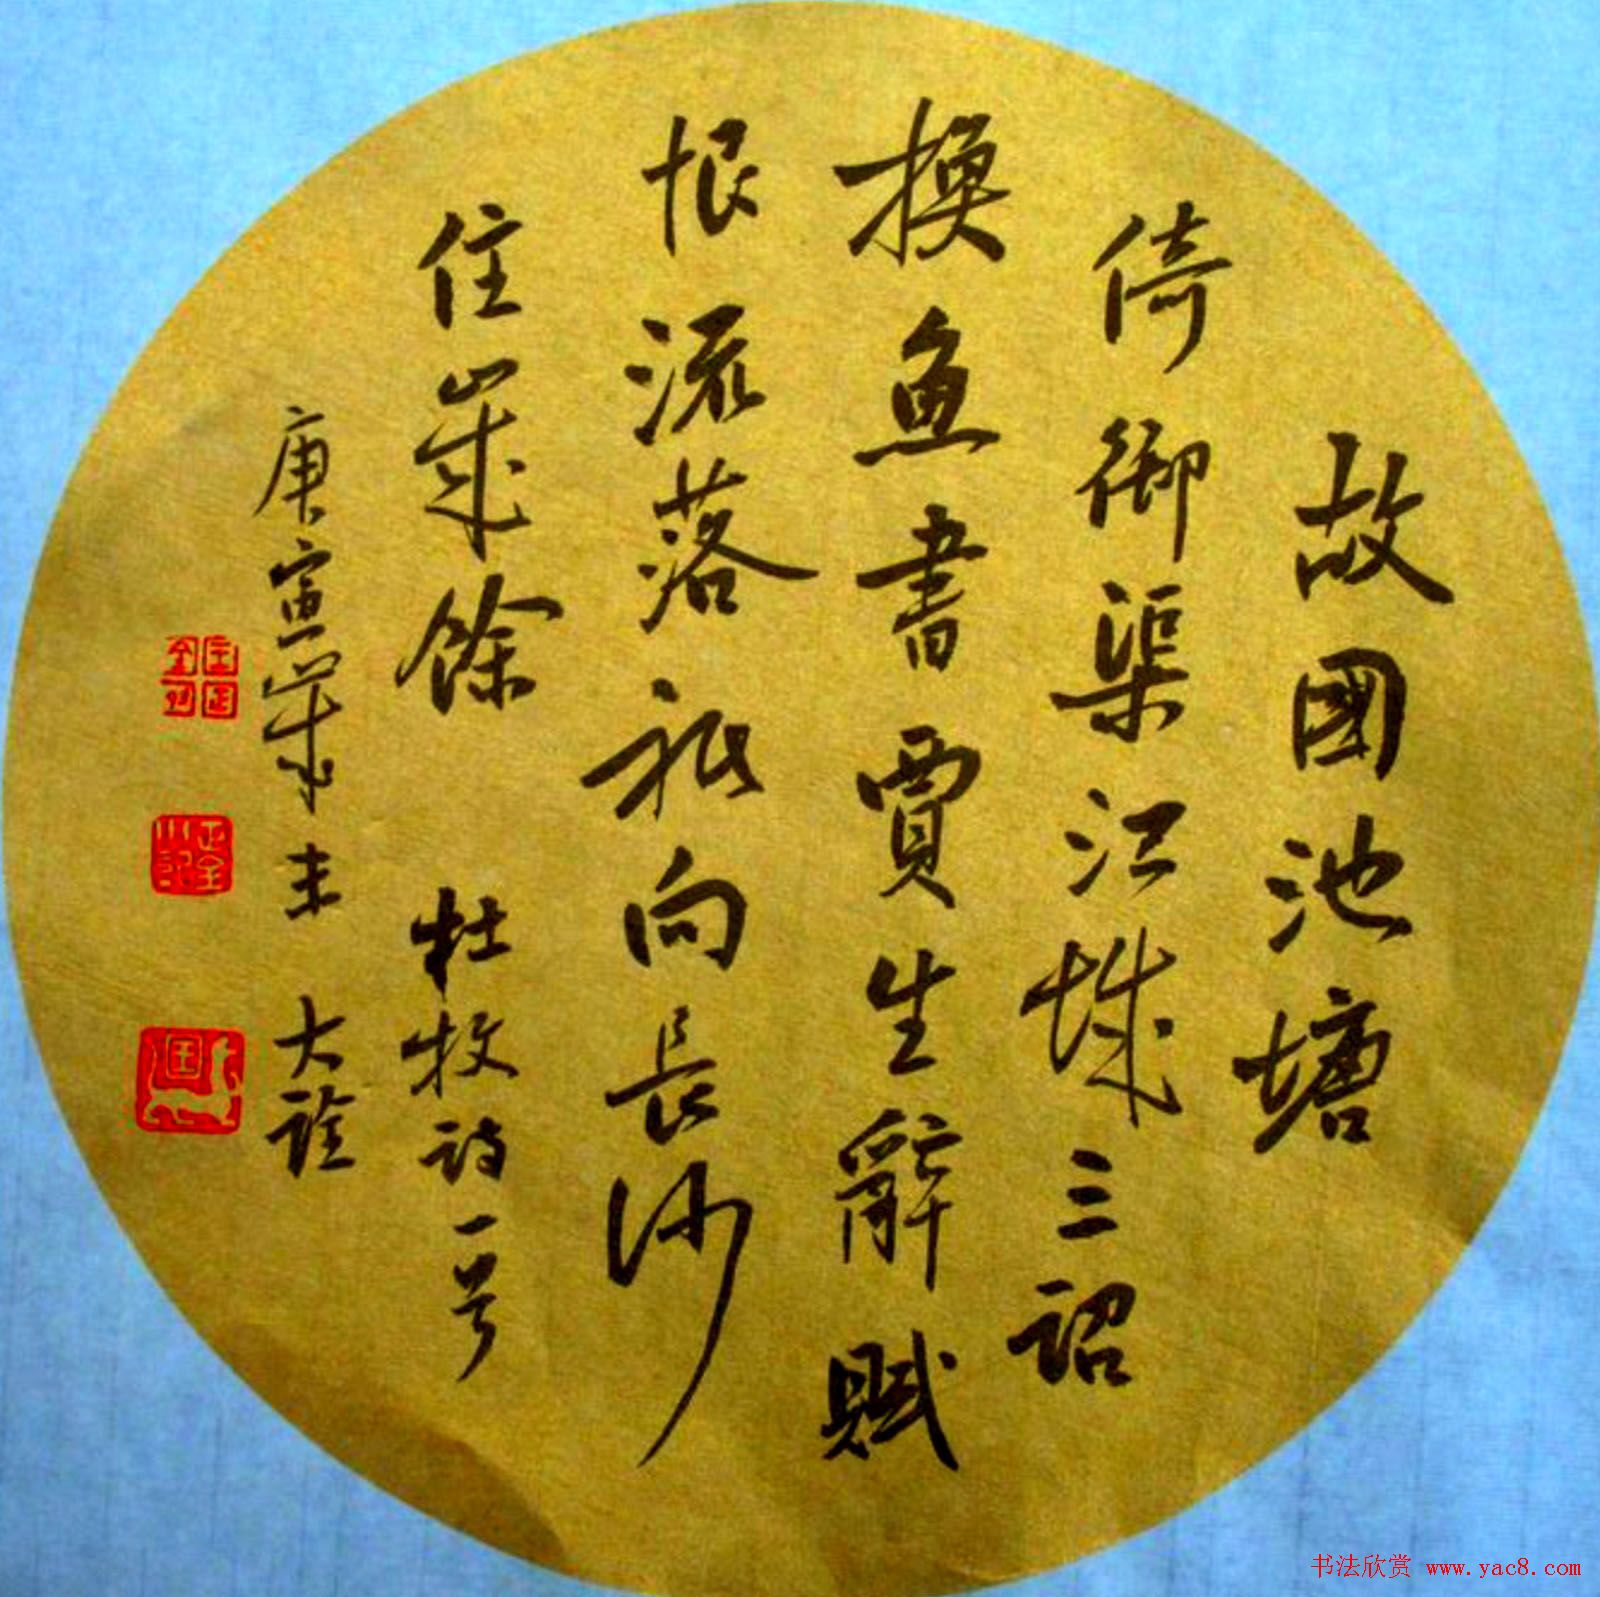 故國池塘
倚御渠江城三詔
換魚書賈生辭賦
恨流落祇向長沙
住歲餘 杜牧詩一首
庚寅歲末 大詮
书法欣赏 www.yac8.com